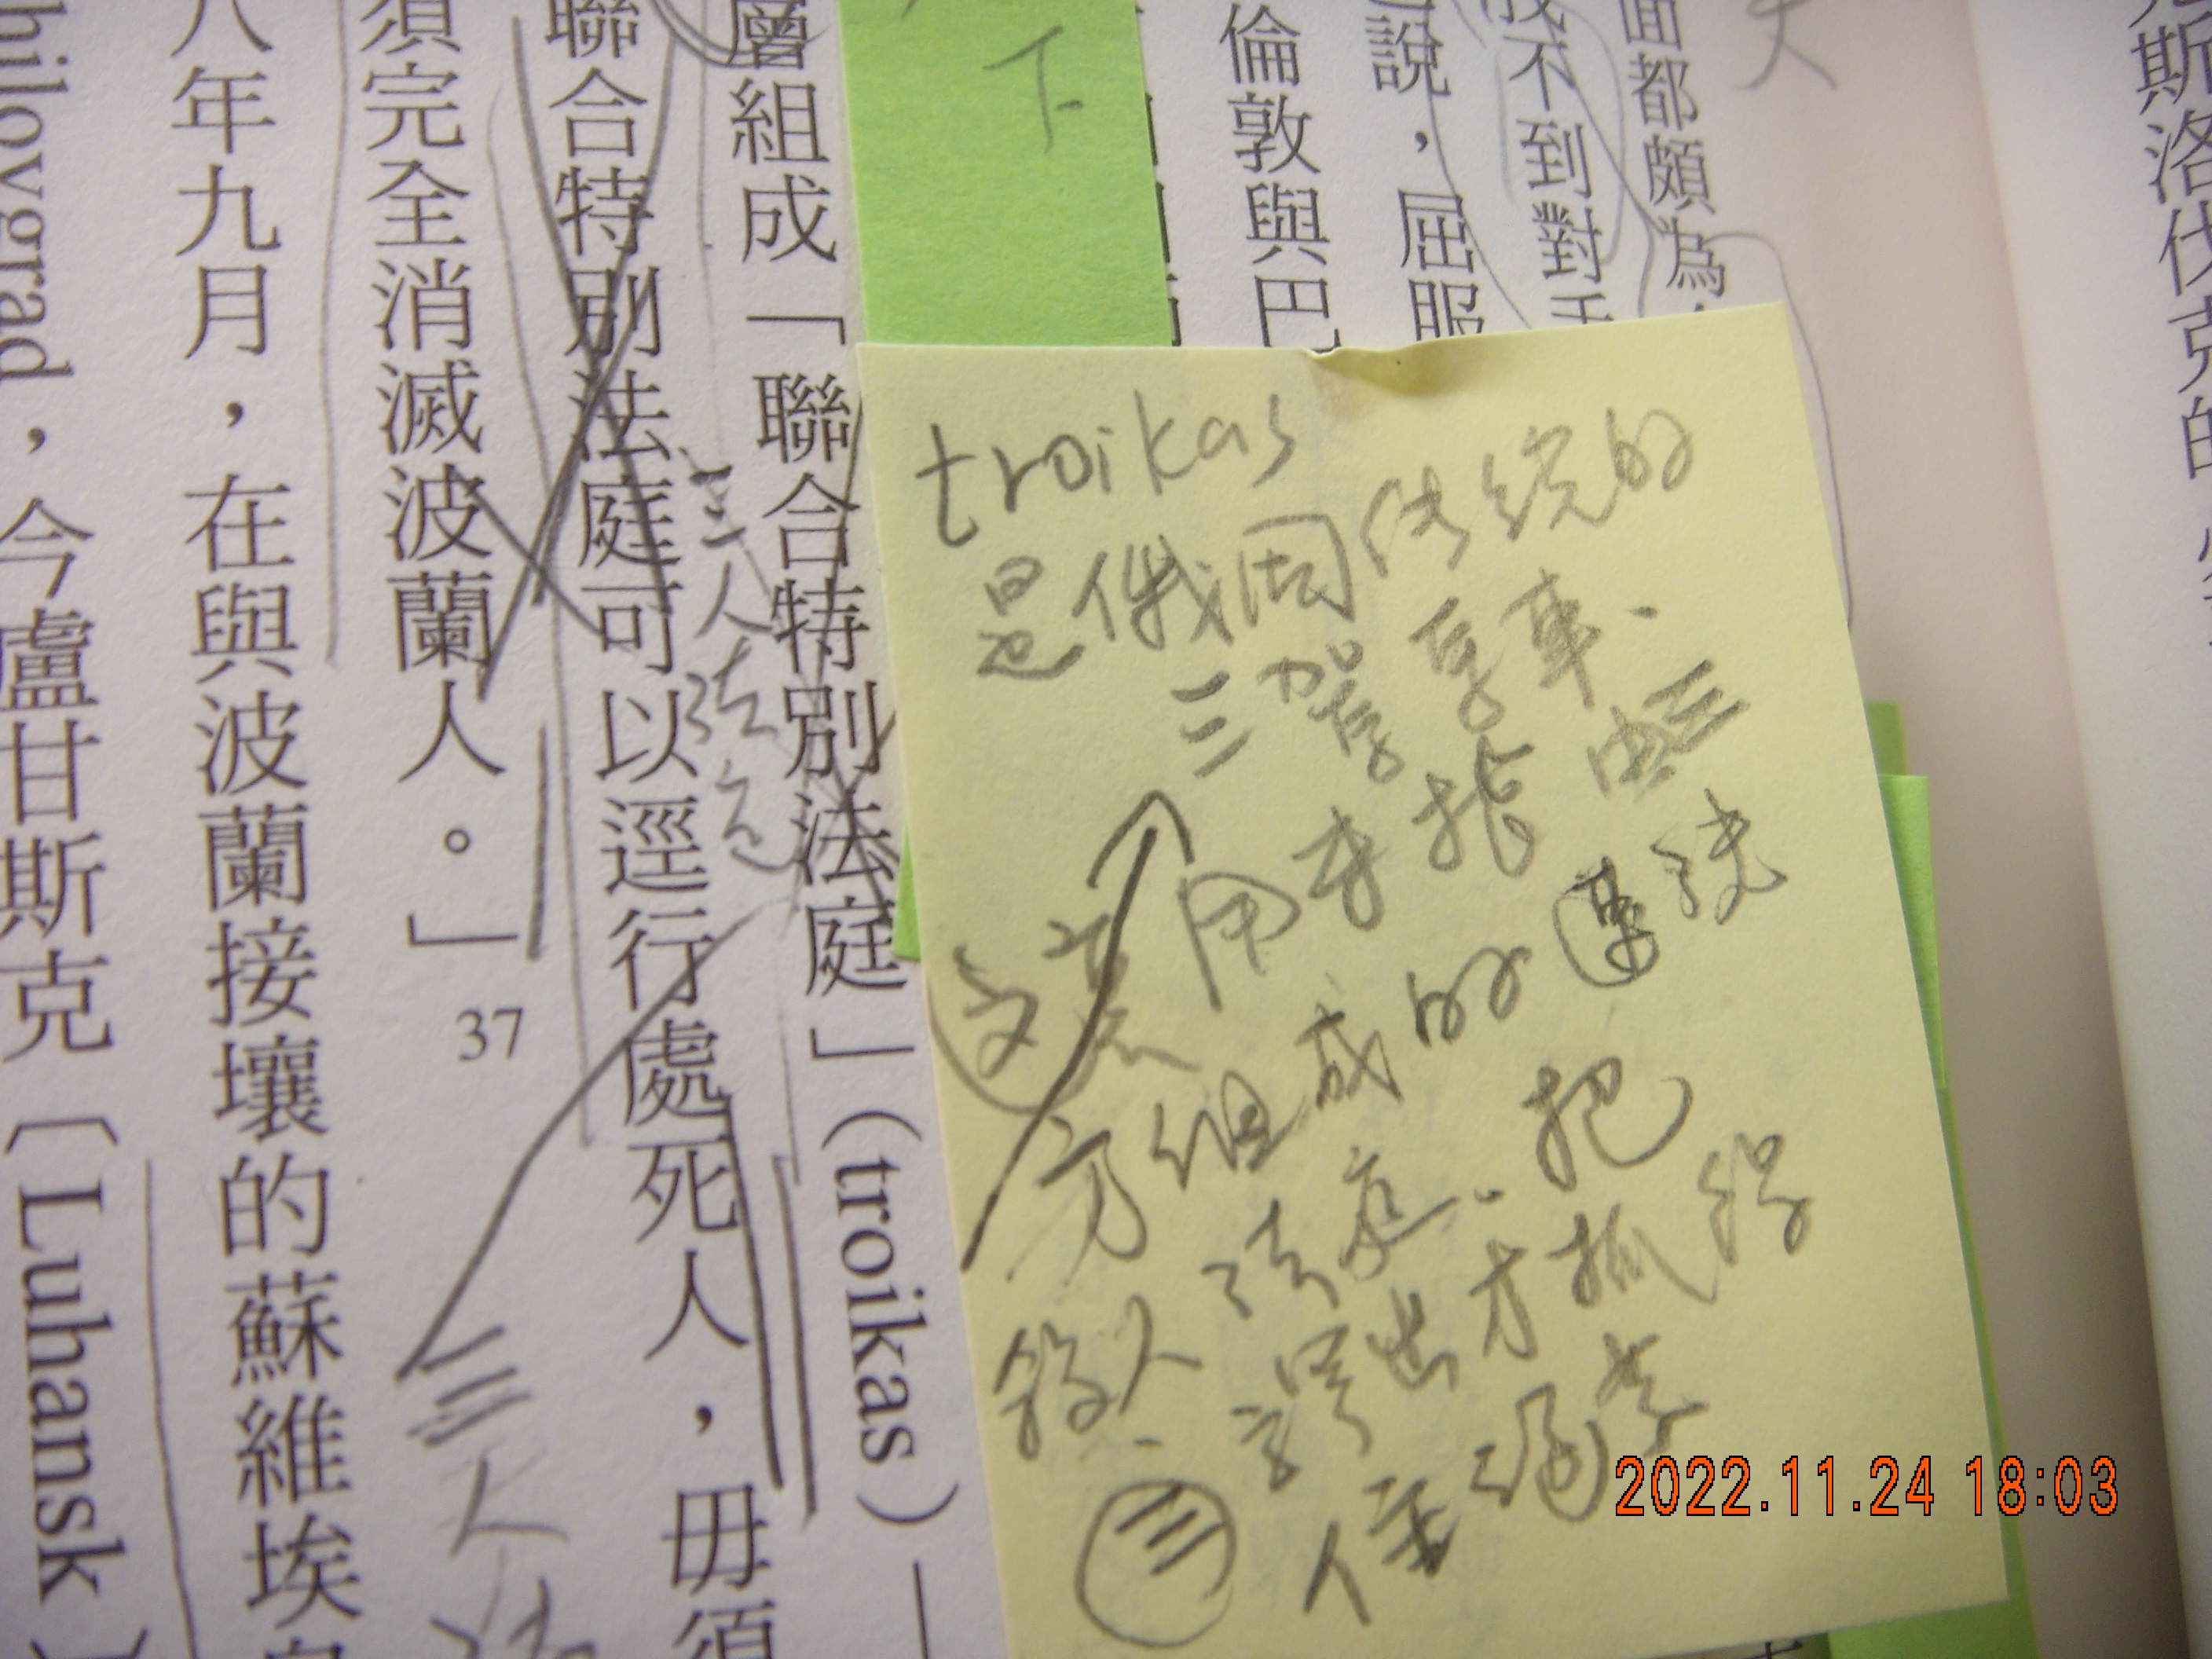 克斯洛伐克的
面都頗為
成不到對手
說，屈服
倫敦與巴
層組成「聯合特別法庭」（troikas）—
聯合特別法庭可以逕行處死人，毋須
須完全消滅波蘭人。」37
八年九月，在與波蘭接壤的蘇維埃
hilovgrad，今盧甘斯克〔Luhansk〕
下
三人法庭
三人法
troikas
是俄國传统的
三驾馬車.
这裏用來指由三
方組成的速決
殺人法庭. 把
三譯出才抓得
住
2022.11.24 18:03